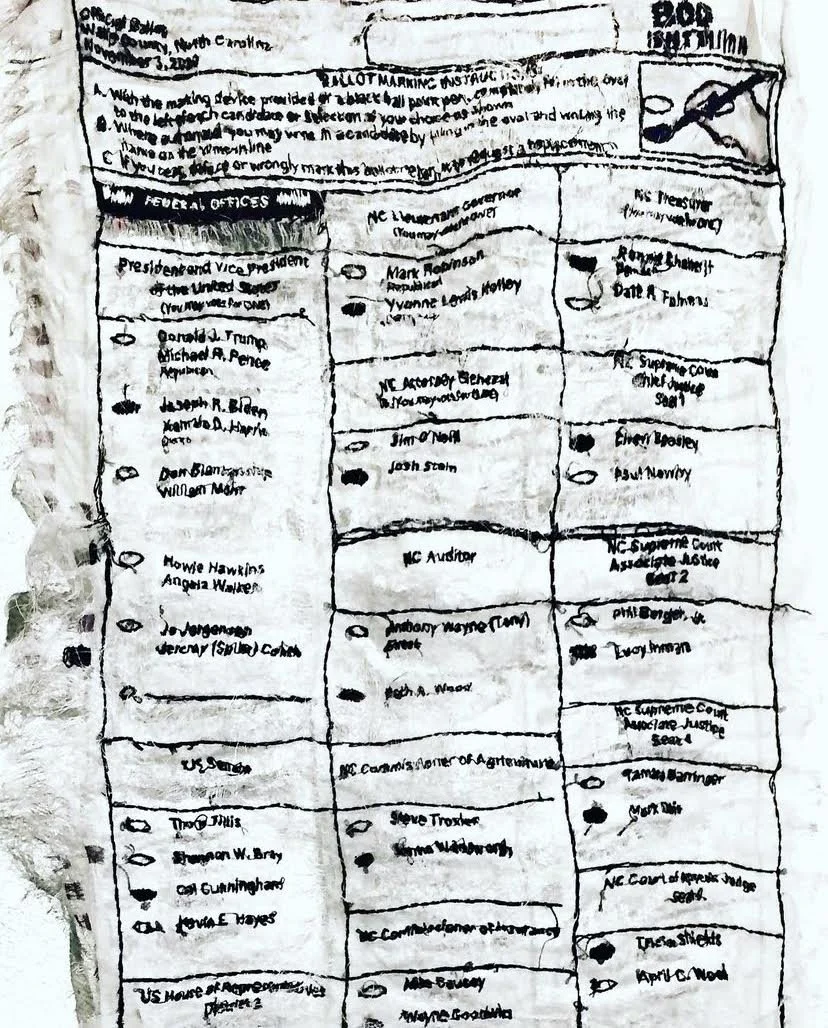 Official Ballot
County, North Carolina
November 3,
BALLOT MARKING
A. With the making device provided or a black ball point pen, completely fill in the oval
to the left of each candidate or selection of your choice as shown
B. Where authorized you may write in a candidate by filling in the oval and writing the
name on the
C. If you tear, deface or wrongly mark this request a replacement
FEDERAL OFFICES
President and Vice President
of the United States
(You may vote for ONE)
Donald J. Trump
Michael R. Pence
Republican
Joseph R. Biden
Kamala D. Harris
Don
William
Howie Hawkins
Angela Walker
Jo Jorgensen
Jeremy (Spike) Cohen
US Senate
Thom Tillis
Shannon W. Bray
Cal Cunningham
Kevin E. Hayes
US House of
District 2
NC Lieutenant Governor
(You may vote
Mark Robinson
Republican
Yvonne Lewis Holley
NC Attorney General
(You may vote for ONE)
Jim O'Neill
Josh Stein
NC Auditor
Anthony Wayne (Tony)
Street
Beth A. Wood
NC Commissioner of Agriculture
Steve Troxler
Wadsworth
NC Commissioner of Insurance
Mike Causey
Wayne Goodwin
NC Treasurer
(You may vote
Ronnie Chatterji
Dale R. Folwell
NC Supreme Court
Chief Justice
Seat 1
Cheri Beasley
Paul Newby
NC Supreme Court
Associate Justice
Seat 2
Phil Berger, Jr.
Lucy Inman
NC Supreme Court
Associate Justice
Seat 4
Tamara Barringer
Mark
NC Court of Appeals Judge
Seat
Tricia Shields
April C. Wood